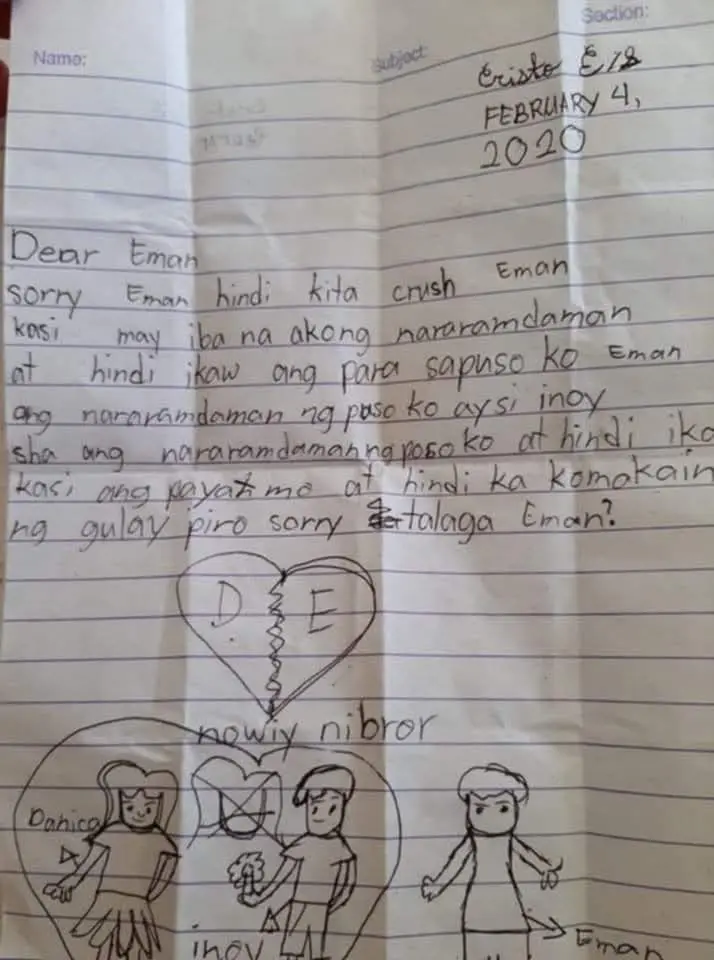 Section:
Name:
Subject
Cristo E/S
FEBRUARY 4,
2020
Dear Eman
sorry Eman hindi kita crush Eman
kasi may iba na akong nararamdaman
at hindi ikaw ang para sapuso ko Eman
ang nararamdaman ng puso ko aysi inoy
sha ang nararamdaman ng poso ko at hindi ika
kasi ang payat mo at hindi ka komakain
ng gulay piro sorry talaga Eman?
D E
nowiy nibror
Danica
inoy
Eman